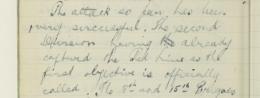 The attack so far has been
very successful. The second
Division having already
captured the Red Line as the
first objective is officially
called. The 5th and 15th Brigades